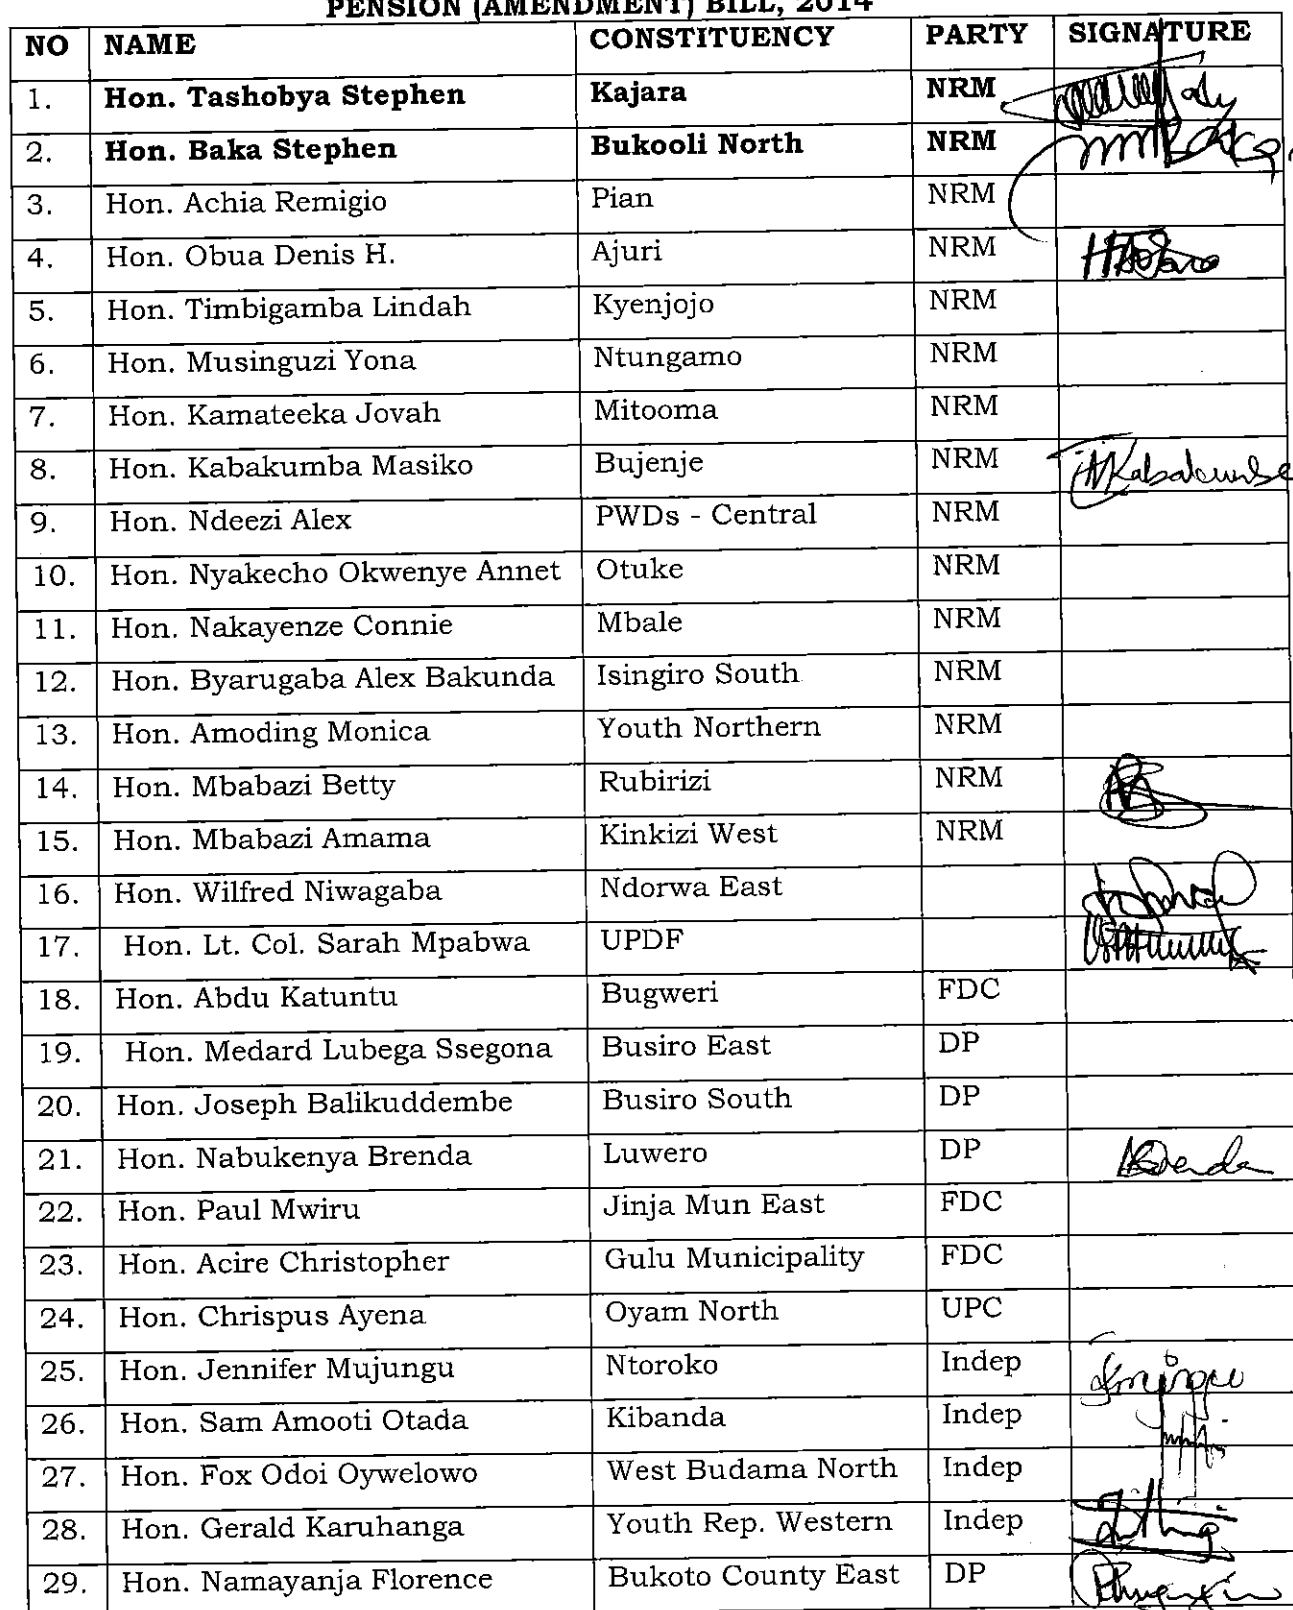 PENSION (AMENDMENT) BILL, 2014
NO NAME CONSTITUENCY PARTY SIGNATURE
1. Hon. Tashobya Stephen Kajara NRM
2. Hon. Baka Stephen Bukooli North NRM
3. Hon. Achia Remigio Pian NRM
4. Hon. Obua Denis H. Ajuri NRM
5. Hon. Timbigamba Lindah Kyenjojo NRM
6. Hon. Musinguzi Yona Ntungamo NRM
7. Hon. Kamateeka Jovah Mitooma NRM
8. Hon. Kabakumba Masiko Bujenje NRM
9. Hon. Ndeezi Alex PWDs - Central NRM
10. Hon. Nyakecho Okwenye Annet Otuke NRM
11. Hon. Nakayenze Connie Mbale NRM
12. Hon. Byarugaba Alex Bakunda Isingiro South NRM
13. Hon. Amoding Monica Youth Northern NRM
14. Hon. Mbabazi Betty Rubirizi NRM
15. Hon. Mbabazi Amama Kinkizi West NRM
16. Hon. Wilfred Niwagaba Ndorwa East
17. Hon. Lt. Col. Sarah Mpabwa UPDF
18. Hon. Abdu Katuntu Bugweri FDC
19. Hon. Medard Lubega Ssegona Busiro East DP
20. Hon. Joseph Balikuddembe Busiro South DP
21. Hon. Nabukenya Brenda Luwero DP
22. Hon. Paul Mwiru Jinja Mun East FDC
23. Hon. Acire Christopher Gulu Municipality FDC
24. Hon. Chrispus Ayena Oyam North UPC
25. Hon. Jennifer Mujungu Ntoroko Indep
26. Hon. Sam Amooti Otada Kibanda Indep
27. Hon. Fox Odoi Oywelowo West Budama North Indep
28. Hon. Gerald Karuhanga Youth Rep. Western Indep
29. Hon. Namayanja Florence Bukoto County East DP